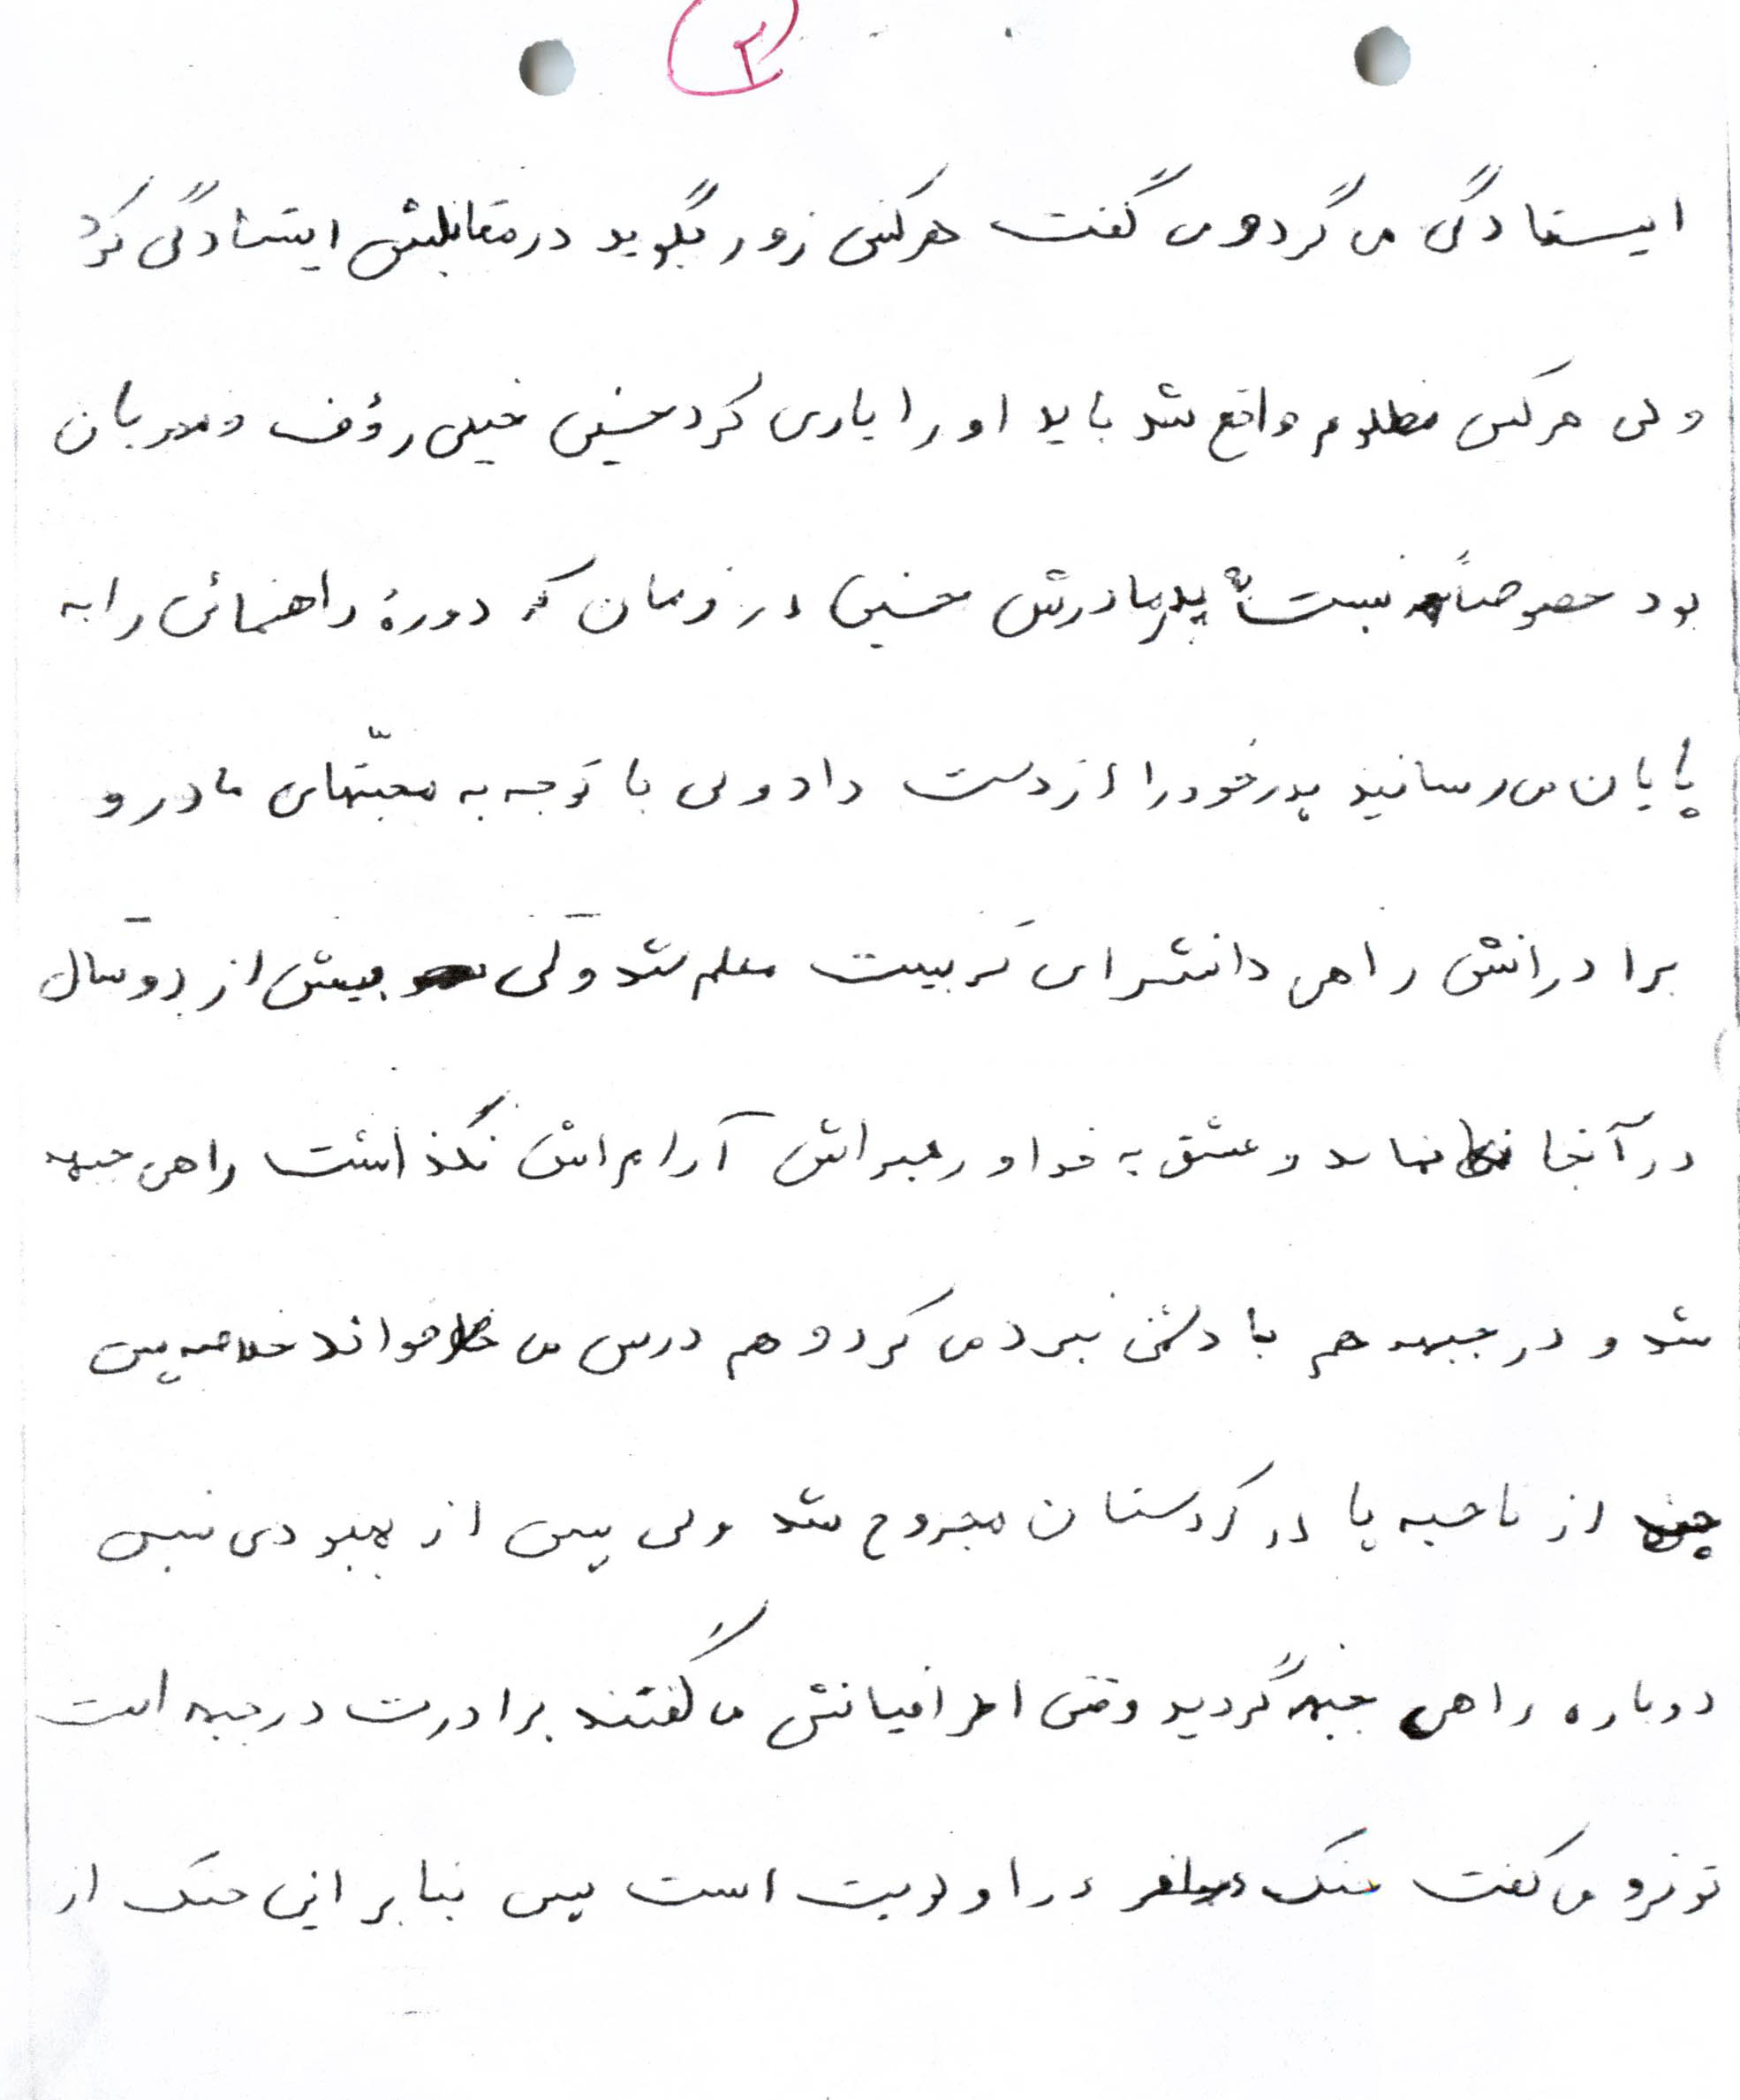 ۲
ایستادگی می گرد و می گفت هر کس زور بگوید در مقابلش ایستادگی کرد
ولی هر کس مظلوم واقع شد باید او را یاری کرد محسنی خیلی رؤف و مهربان
بود خصوصاً نسبت به پدر مادرش محسنی در زمان که دورهٔ راهنمائی را به
پایان می رسانید پدر خود را از دست داد ولی با توجه به محبّتهای مادر و
برادرانش راهی دانشسرای تربیت معلم شد ولی بیش از دو سال
در آنجا نماند و عشق به خدا و رهبر اش آرام اش نگذاشت راهی جبهه
شد و در جبهه هم با دشمن نبرد می کرد و هم درس می خواند خلاصه پس
از ناحیه پا در کردستان مجروح شد ولی پس از بهبودی نسبی
دوباره راهی جبهه گردید وقتی اطرافیانش می گفتند برادرت در جبهه است
تو نرو می گفت جنگ در اولویت است پس بنابر این جنگ از